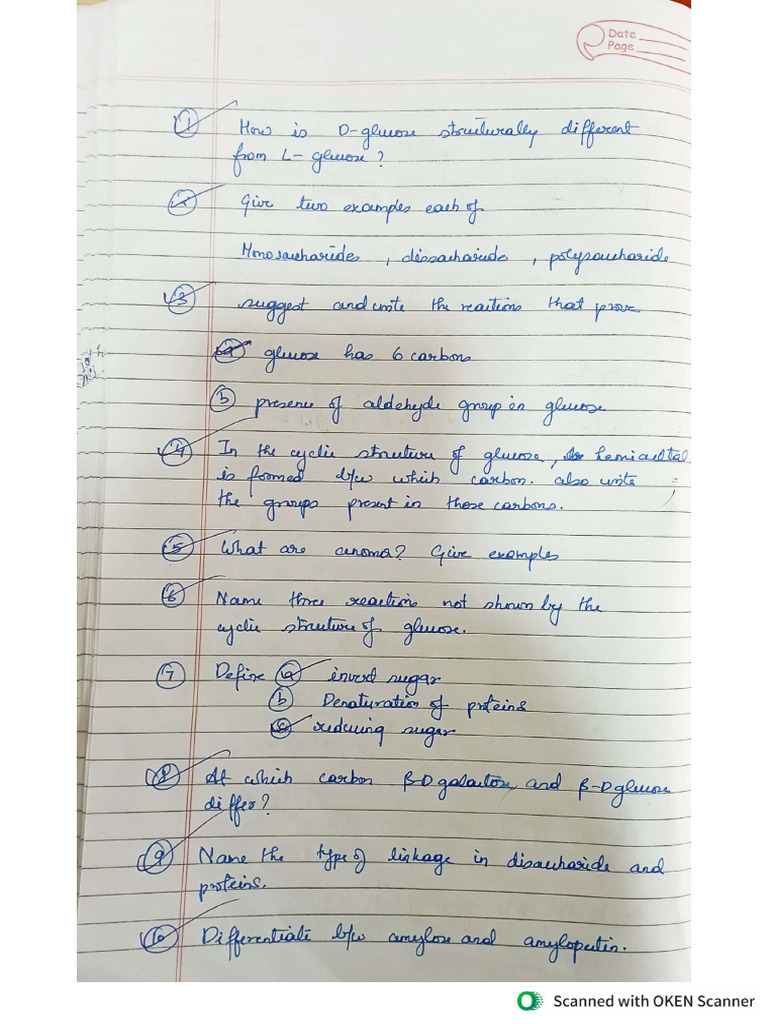 Date
Page
① How is D-glucose structurally different
from L-glucose?
② Give two examples each of
Monosaccharides, dissacharide, polysaccharide
③ suggest and write the reactions that prove
ⓐ glucose has 6 carbons
ⓑ presence of aldehyde group in glucose
④ In the cyclic structure of glucose, hemiacetal
is formed b/w which carbon. also write
the groups present in those carbons.
⑤ What are anomer? Give examples
⑥ Name three reaction not shown by the
cyclic structure of glucose.
⑦ Define ⓐ invert sugar
ⓑ Denaturation of proteins
ⓒ reducing sugar
⑧ At which carbon β-D galactose and β-D glucose
differ?
⑨ Name the type of linkage in disaccharide and
proteins.
⑩ Differentiate b/w amylose and amylopectin.
Scanned with OKEN Scanner